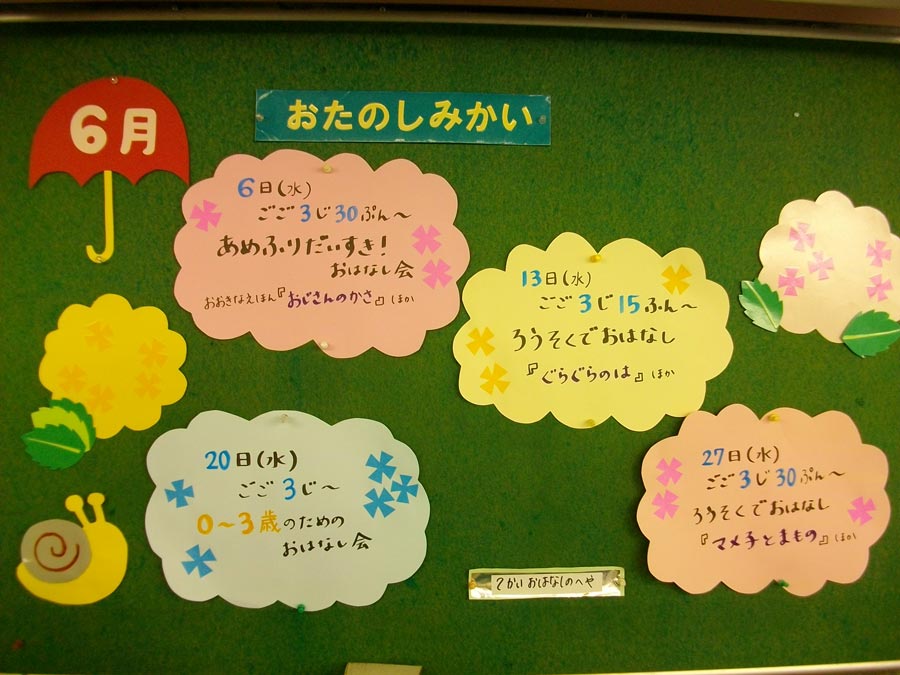 6月
おたのしみかい
6日(水)
ごご3じ30ぷん〜
あめふりだいすき!
おはなし会
おおきなえほん『おじさんのかさ』ほか
13日(水)
ごご3じ15ふん〜
ろうそくでおはなし
『ぐらぐらのは』ほか
20日(水)
ごご3じ〜
0〜3歳のための
おはなし会
27日(水)
ごご3じ30ぷん〜
ろうそくでおはなし
『マメ子とまもの』ほか
2かい おはなしのへや